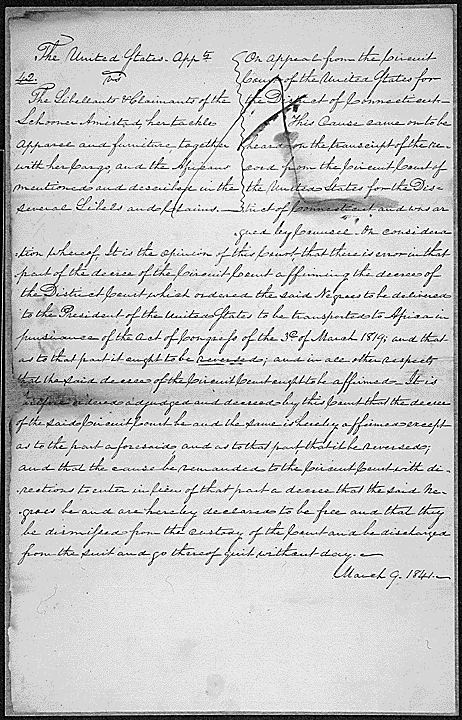 The United States. Appts
42. vs
The Libellants & Claimants of the
Schooner Amistad, her tackle
apparel and furniture together
with her Cargo, and the Africans
mentioned and described in the
several Libels and Claims.
On appeal from the Circuit
Court of the United States for
the District of Connecticut.
This Cause came on to be
heard on the transcript of the re-
cord from the Circuit Court of
the United States for the Dis-
trict of Connecticut and was ar-
gued by Counsel. On considera
tion whereof, It is the opinion of this Court that there is error in that
part of the decree of the Circuit Court affirming the decree of
the District Court which ordered the said Negroes to be delivered
to the President of the United States to be transported to Africa in
pursuance of the act of Congress of the 3d of March 1819; and that
as to that part it ought to be reversed; and in all other respects
that the said decree of the Circuit Court ought to be affirmed. It is
therefore ordered adjudged and decreed by this Court that the decree
of the said Circuit Court be and the same is hereby affirmed except
as to the part aforesaid and as to that part that it be reversed;
and that the cause be remanded to the Circuit Court with di-
rections to enter in lieu of that part a decree that the said Ne-
groes be and are hereby declared to be free and that they
be dismissed from the custody of the Court and be discharged
from the suit and go thereof quit without day.
March 9. 1841.